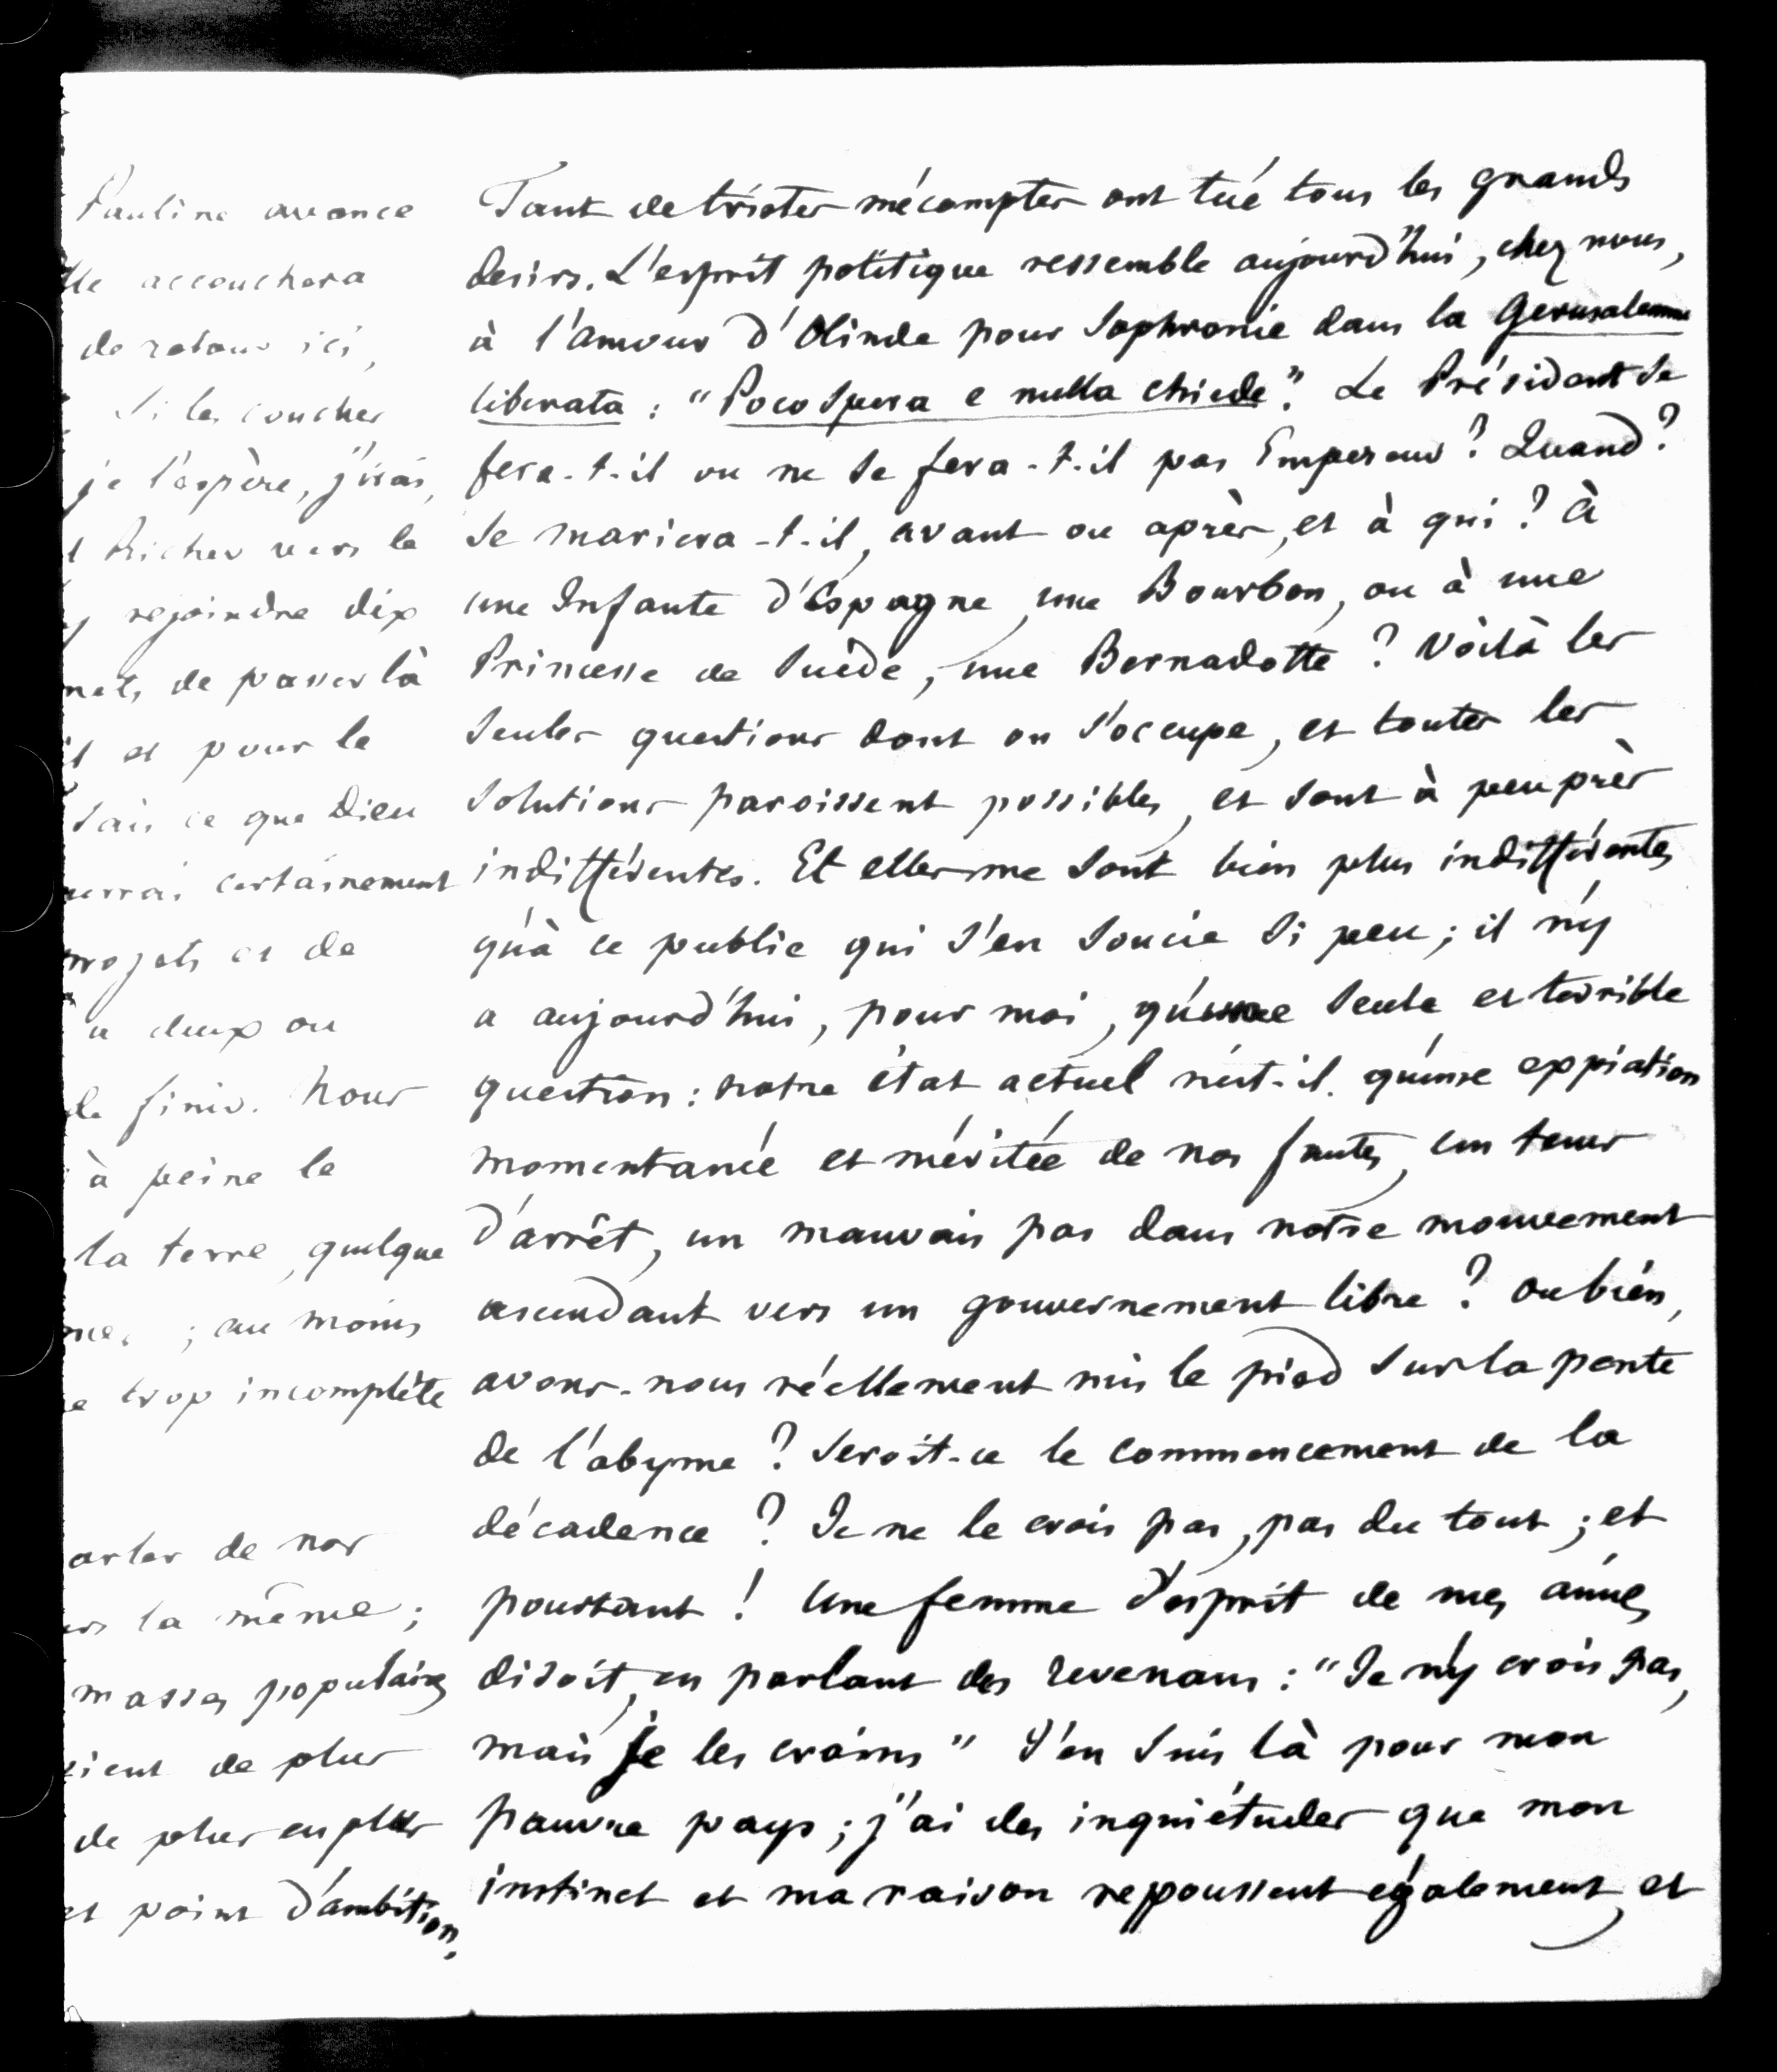 Pauline avance
lle accouchera
de retour ici,
Si les couches
je l'espère, j'irai,
t Richer vers le
y rejoindre dix
mets de passer là
il et pour le
sais ce que Dieu
uerrai certainement
projets et de
a deux ou
de finir. Nous
à peine le
la terre, quelque
mes ; au moins
e trop incomplète
arler de nos
urs la même ;
masses populaires
tient de plus
de plus en plus
et point d'ambition.
Tant de tristes mécomptes ont tué tous les grands
desirs. L'esprit politique ressemble aujourd'hui, chez nous,
à l'amour d'Olinde pour Sophronie dans la Gerusalemme
liberata : "Poco spera e nulla chiede". Le Président se
fera-t-il ou ne se fera-t-il pas Empereur ? Quand ?
Se mariera-t-il, avant ou après, et à qui ? à
une Infante d'Espagne, une Bourbon, ou à une
Princesse de Suède, une Bernadotte ? Voilà les
seules questions dont on s'occupe, et toutes les
solutions paroissent possibles, et sont à peu près
indifférentes. Et elles me sont bien plus indifférentes
qu'à ce public qui s'en soucie si peu ; il n'y
a aujourd'hui, pour moi, qu'une seule et terrible
question : notre état actuel n'est-il qu'une expiation
momentanée et méritée de nos fautes, un tems
d'arrêt, un mauvais pas dans notre mouvement
ascendant vers un gouvernement libre ? Ou bien,
avons-nous réellement mis le pied sur la pente
de l'abyme ? Seroit-ce le commencement de la
décadence ? Je ne le crois pas, pas du tout ; et
pourtant ! Une femme d'esprit de mes amies
disoit, en parlant des revenans : "Je n'y crois pas,
mais je les crains" J'en suis là pour mon
pauvre pays ; j'ai des inquiétudes que mon
instinct et ma raison repoussent également, et